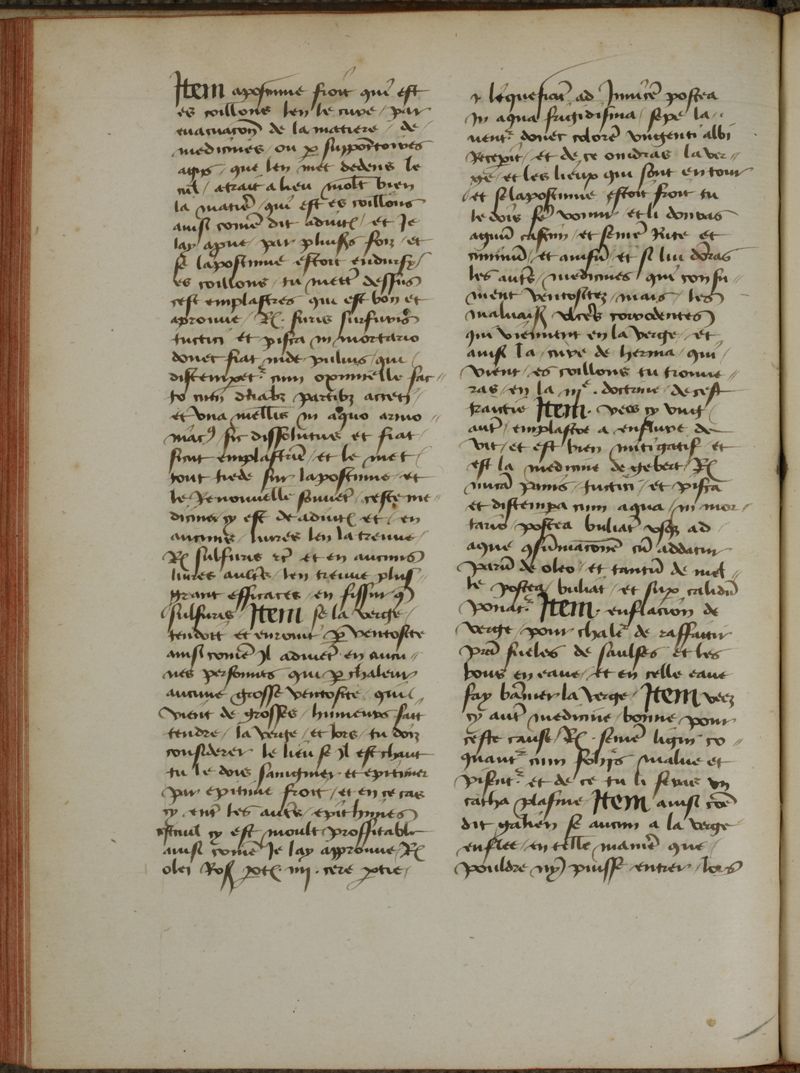 Item apostume froit qui est
es coillons len le cure par
euacuacon de la matiere de
medicines ou p suppositoires
agus que len met dedens le
cul atrait a lieu molt bien
la matie qui est es coillons
ainsi come dit auic et Je
lay apue par plusrs fois et
se lapostume estoit endurssy
es coillons tu mett dessus
cest emplastres qui est bon et
aprouue Rx furis furfuris
tuctici et pista in mortario
donec fiat inde puluis qui
distempet cum oximelle fac
to cum duabz partibz aceti
et vna mellis in aquo armo
niac sit dissolutus et fiat
sicut emplastru et le met
tout tiede sur lapostume et
le Renouuelle souuet ceste me
dicine cy est de auic et en
aucuns liures len la treuue
Rx sulfuris et en aucuns
liures aults len treuue plus
grant efficaces en fissur
sulfuris Item se la verge
tendoit et par ventosite
ainsi come Il aduiet en aucu
nes personnes qui p chaleur
aucune grosse ventosite qui
vient de grosses humeurs fait
tendre la verge et lors tu dois
considerer le lieu se il est chaut
tu le dois sainguier et epitimer
par epitime froit et en ce cas
cy ent les autrs epithimes
cestuil cy est moult proffitable
ainsi come Je lay approuue Rx
olei Ros pt iiij cere ptie
lique ad Inuice postea
In aqua frigidissima sepe la
uent donec colore vngenti albi
Recepit et de ce oindras la ver
ge et les lieux qui sont entour
et se lapostume estoit froit tu
le dois fe vomir et li donras
aquam casei et seme Rute et
ciminu et anisu et si lui doras
les autrs medicines qui consu
ment ventositez mais les
maluaiss vlcers corrodentes
qui viennent en la verge et
ainsi la cure de hernia qui
vient es coillons tu trouue
ras en la iije doctrine de cest
traictie Item veez cy vng
aut emplastre a enflure de
vit et est bien mitigatif et
est la medicine de gebert Rx
mica panis tuctici et pista
et distempa cum aqua in mor
tario postea buliat vsqz ad
aque gsumacione cu addatur
paru de oleo et tantu de mel
le postea buliat et sup calidu
ponat Item enflacion de
verge pour chalr de raffaitir
pran fueles de saulses et les
bous en eaue et en celle eaue
fay baigner la verge Item veez
cy aut medicine bonne pour
ceste cause Rx seme ligni co
quant cum foliis malue et
pisent et de ce tu li feras vn
catha plasme Item ainsi coe
dit galien se aucun a la verge
enflee en telle manie que
pouldre ny puisse entrer lors